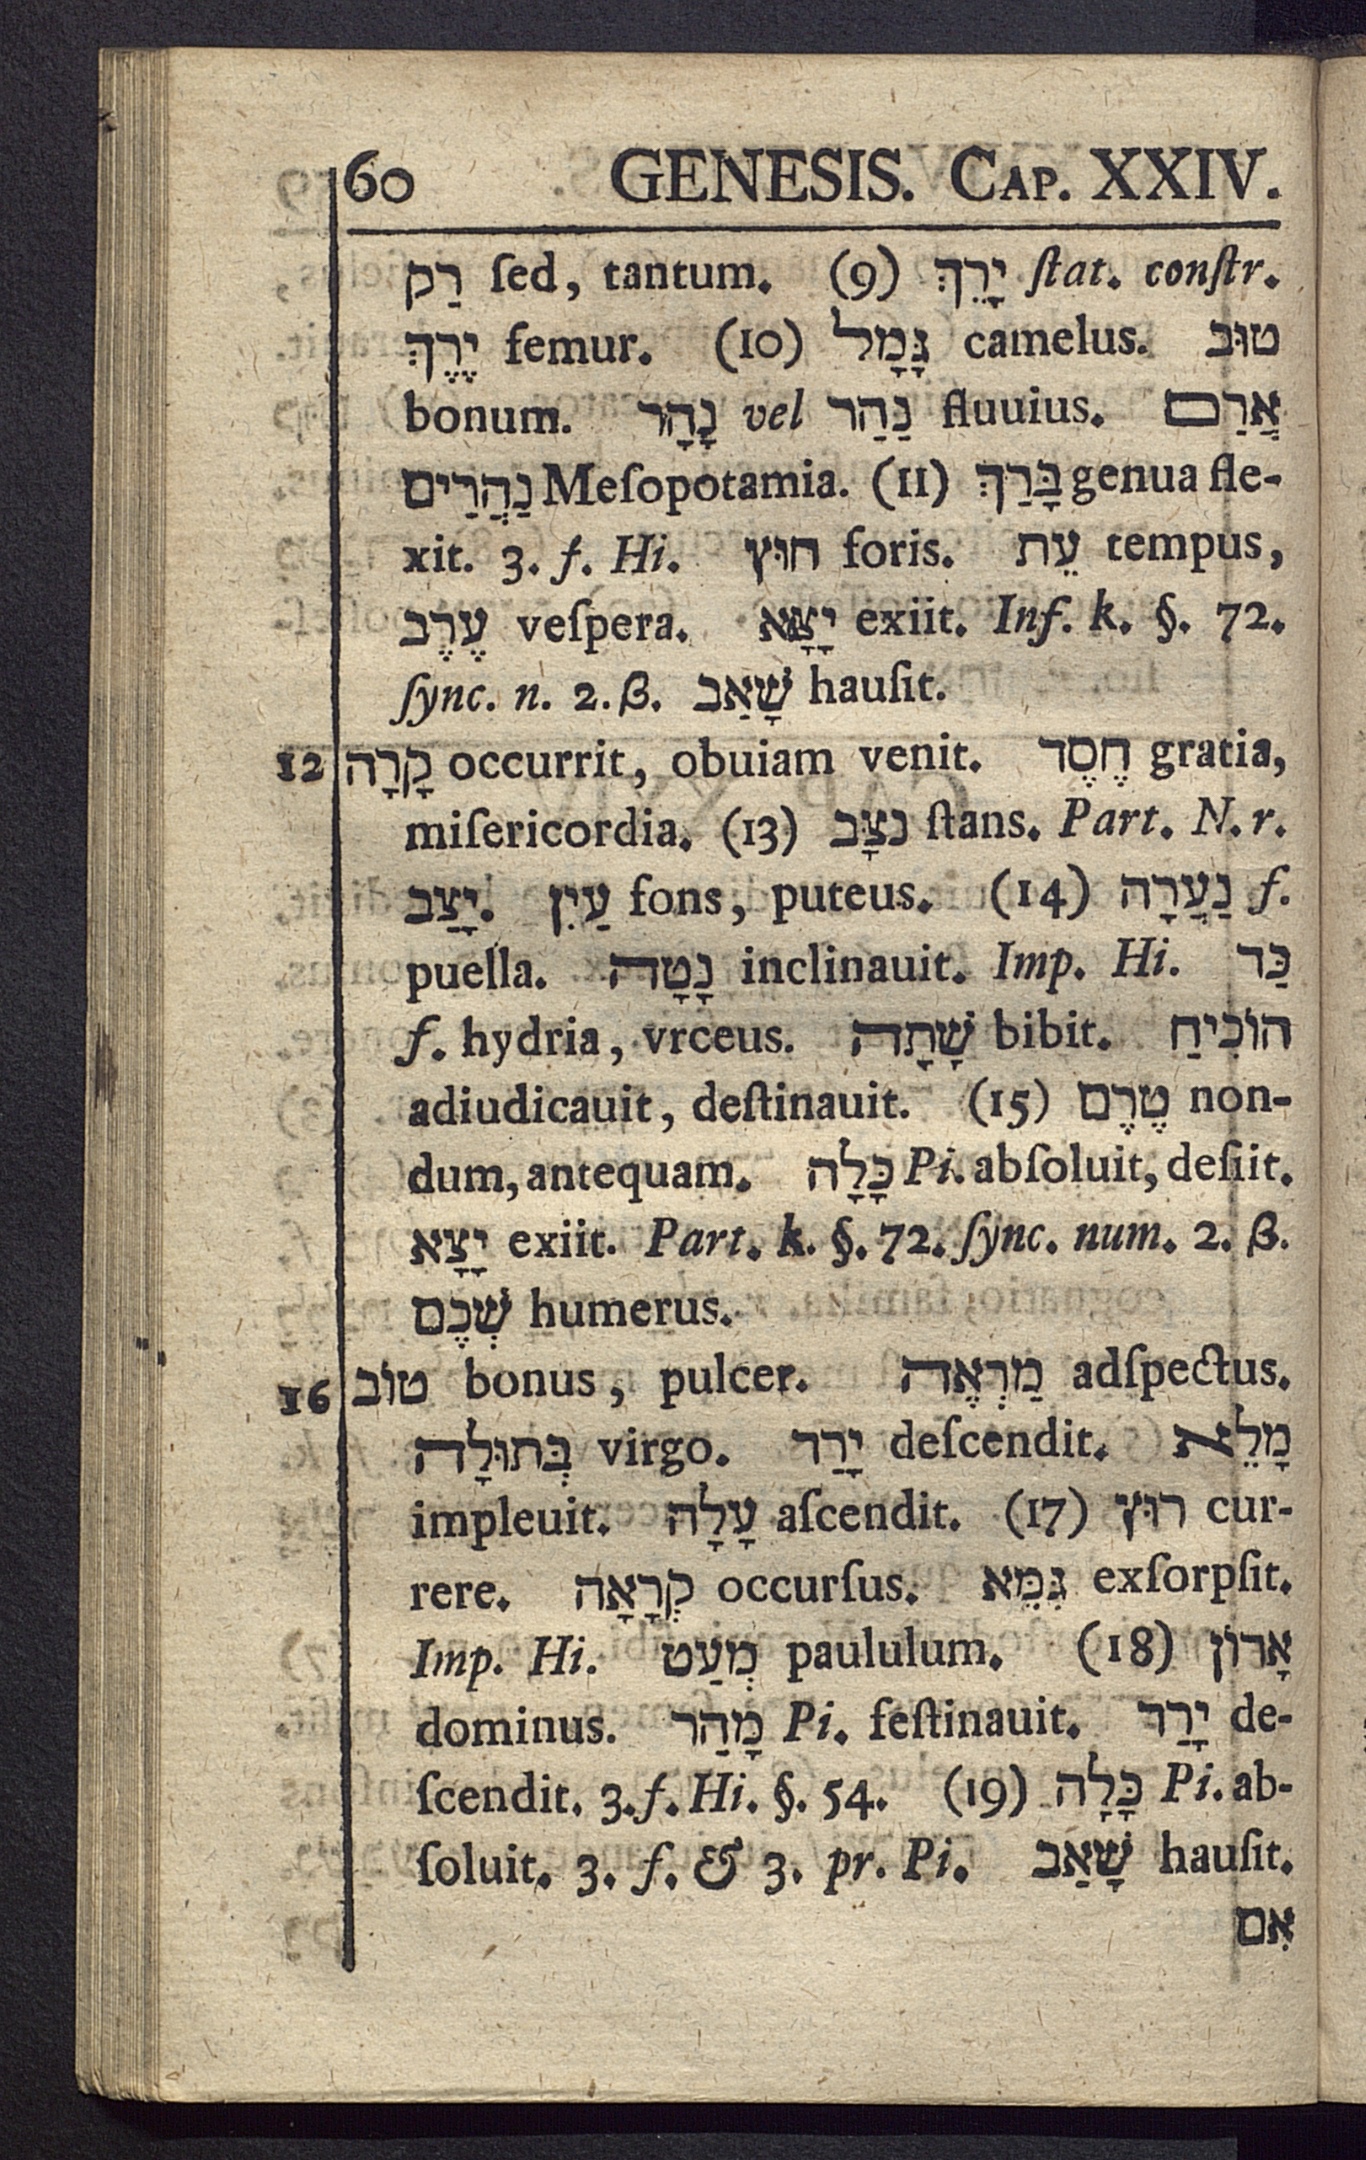 60 GENESIS. CAP. XXIV.
רַק ſed, tantum. (9) יָרֵךְ ſtat. conſtr.
יֶרֶךְ femur. (10) גָּמָל camelus. טוּב
bonum. נָהָר vel נַהַר fluuius. אֲרַם
נַהֲרַים Meſopotamia. (11) בָּרַךְ genua fle-
xit. 3. f. Hi. חוּץ foris. עֵת tempus,
עֶרֶב veſpera. יָצָא exiit. Inf. k. §. 72.
ſync. n. 2. β. שָׁאַב hauſit.
12 קָרָה occurrit, obuiam venit. חֶסֶד gratia,
miſericordia. (13) נִצָּב ſtans. Part. N. r.
יָצַב. עַיִן fons, puteus. (14) נַעֲרָה f.
puella. נָטָה inclinauit. Imp. Hi. כַּד
f. hydria, vrceus. שָׁתָה bibit. הוֹכִיחַ
adiudicauit, deſtinauit. (15) טֶרֶם non-
dum, antequam. כָּלָה Pi. abſoluit, deſiit.
יָצָא exiit. Part. k. §. 72. ſync. num. 2. β.
שְׁכֶם humerus.
16 טוֹב bonus, pulcer. מַרְאֶה adſpectus.
בְּתוּלָה virgo. יָרַד deſcendit. מָלֵא
impleuit. עָלָה aſcendit. (17) רוּץ cur-
rere. קְרָאָה occurſus. גִּמֵּא exſorpſit.
Imp. Hi. מְעַט paululum. (18) אָדוֹן
dominus. מָהַר Pi. feſtinauit. יָרַד de-
ſcendit. 3. f. Hi. §. 54. (19) כָּלָה Pi. ab-
ſoluit. 3. f. & 3. pr. Pi. שָׁאַב hauſit.
אִם